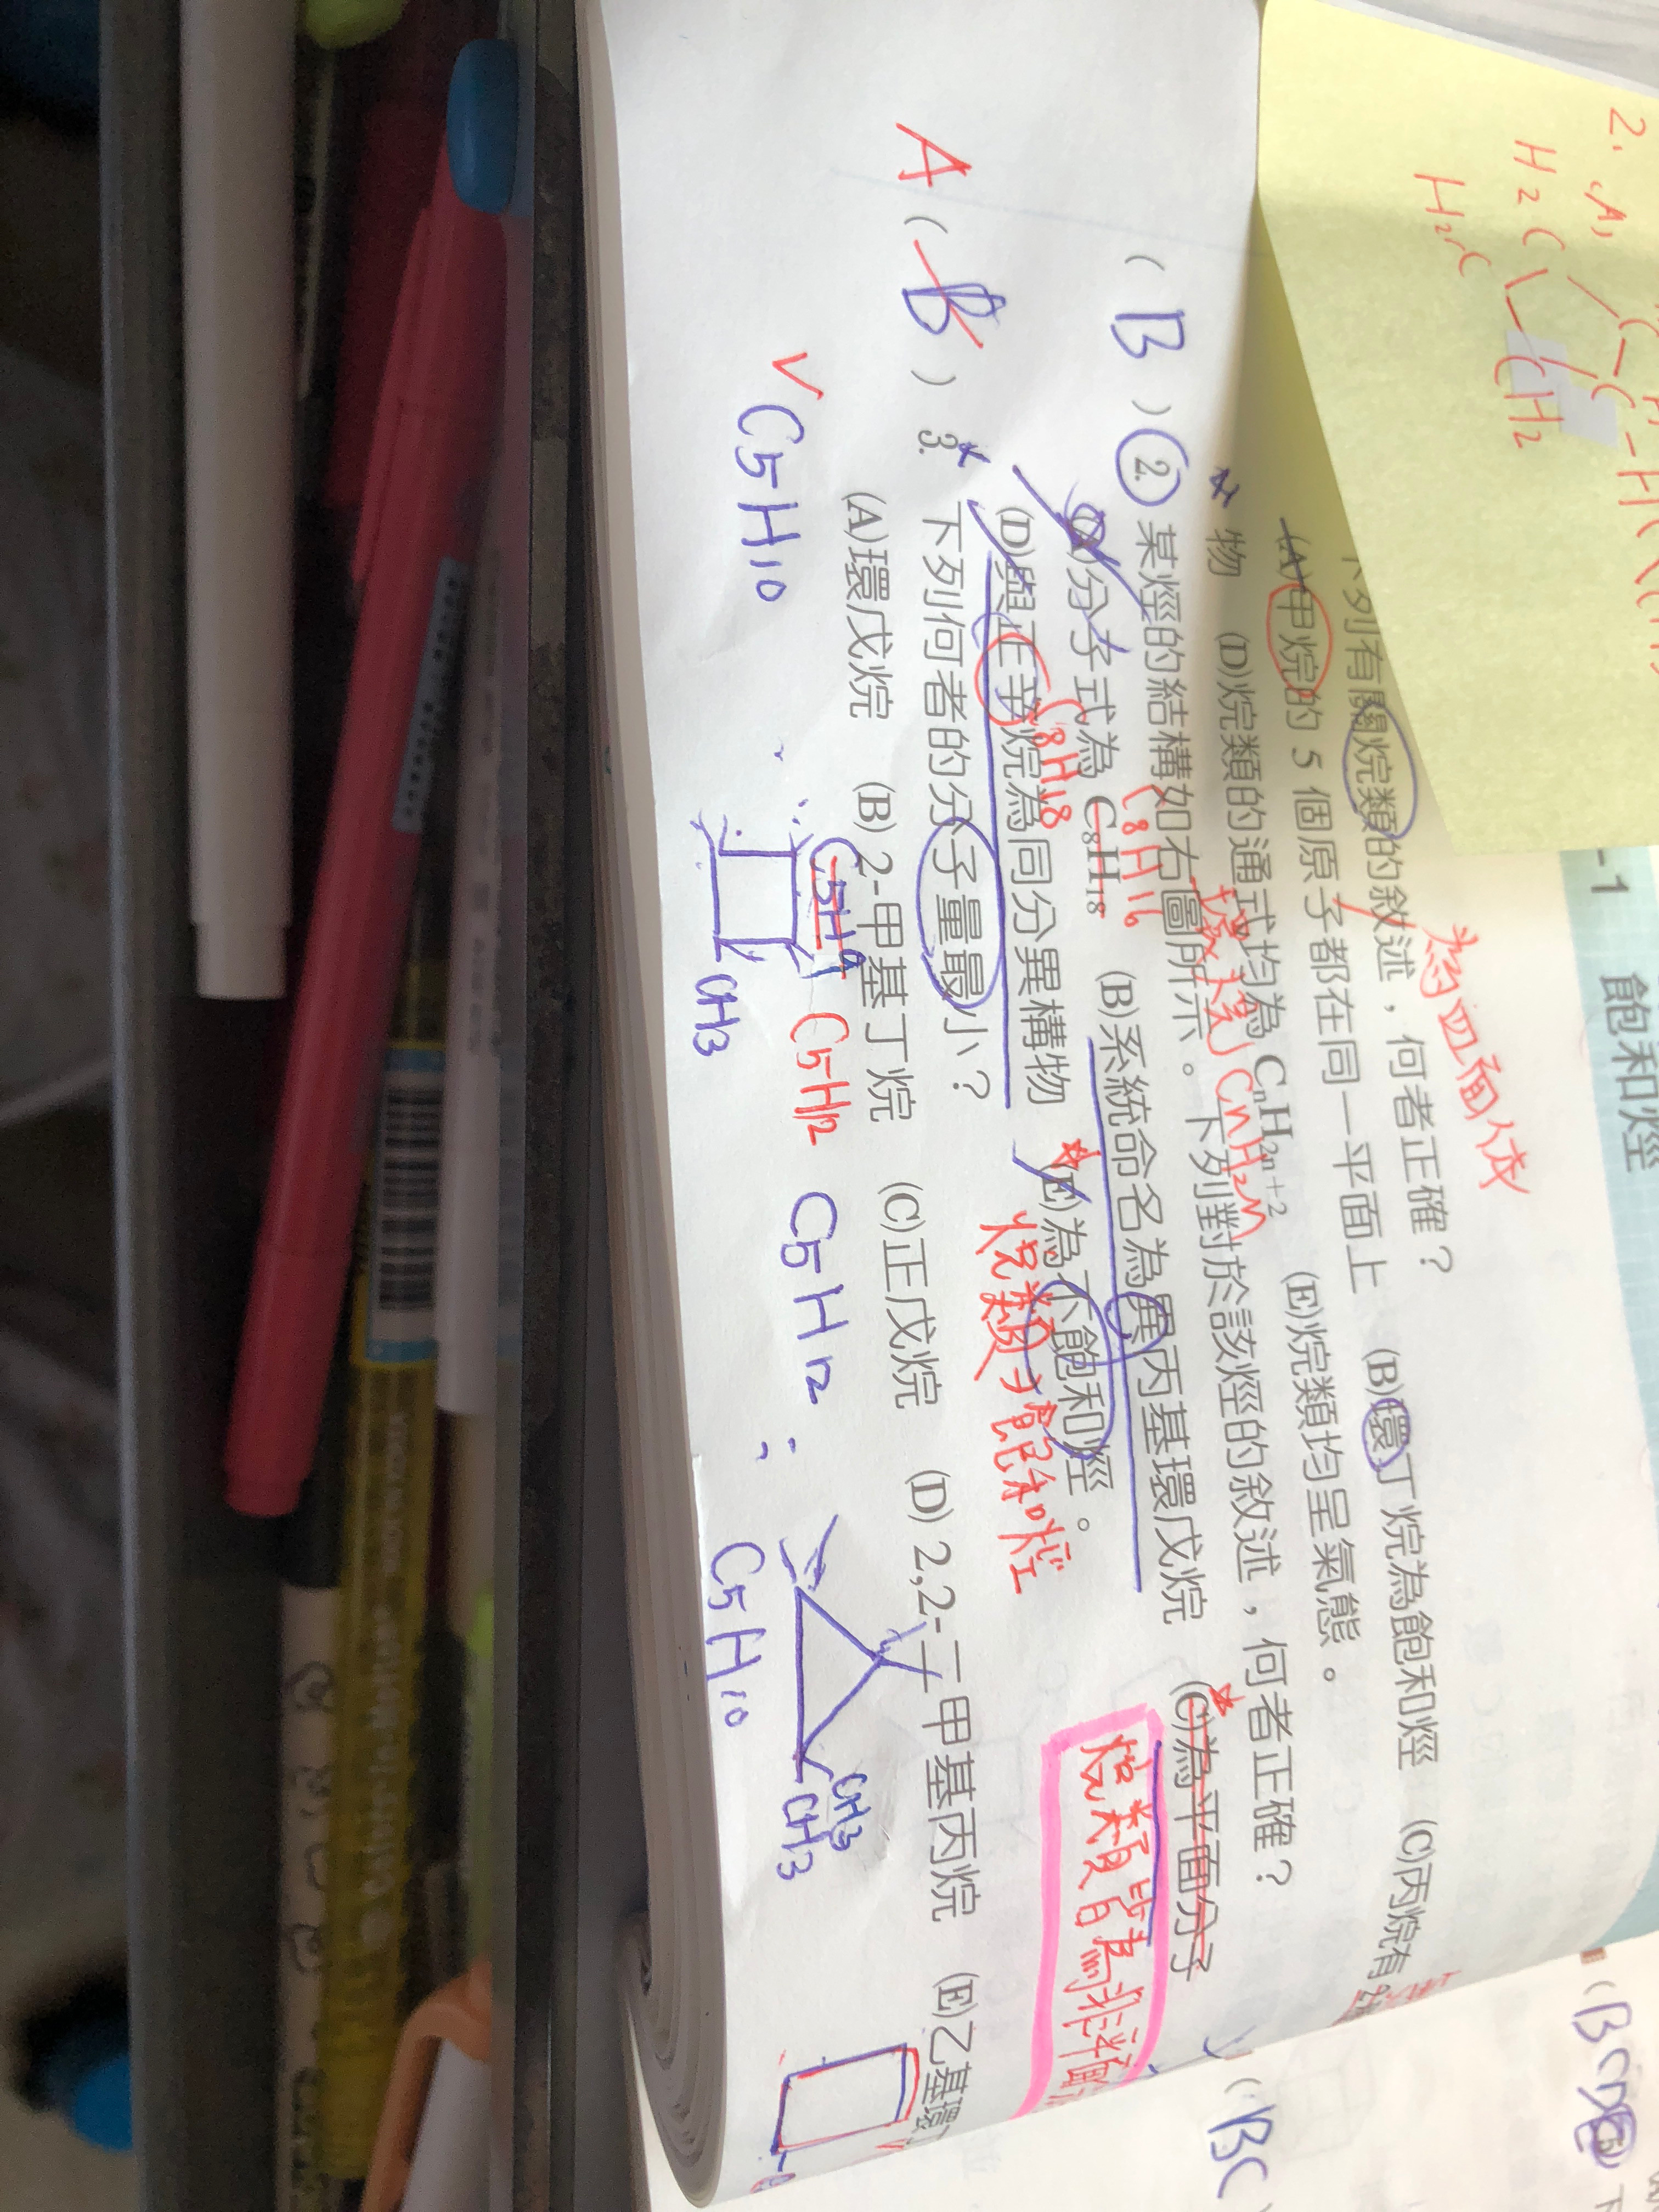 2. A,
H2C
CH2
H2C
-1 飽和烴
為四面体
下列有關烷類的敘述，何者正確？
(A)甲烷的 5 個原子都在同一平面上 (B)環丁烷為飽和烴 (C)丙烷有
物 (D)烷類的通式均為 CnH2n+2 (E)烷類均呈氣態。
環烷 CnH2n
( B ) 2. 某烴的結構如右圖所示。下列對於該烴的敘述，何者正確？
C8H16
(A)分子式為 C8H18 (B)系統命名為異丙基環戊烷 (C)為平面分子
C8H18
(D)與正辛烷為同分異構物 (E)為不飽和烴。
烷類為飽和烴
烷類皆為非平面
A ( B ) 3. 下列何者的分子量最小？
(A)環戊烷 (B) 2-甲基丁烷 (C)正戊烷 (D) 2,2-二甲基丙烷 (E)乙基環丁
C5H9 C5H12
C5H10
C5H12
CH3
CH3
CH3
C5H10
Color-In-Motion
(BC